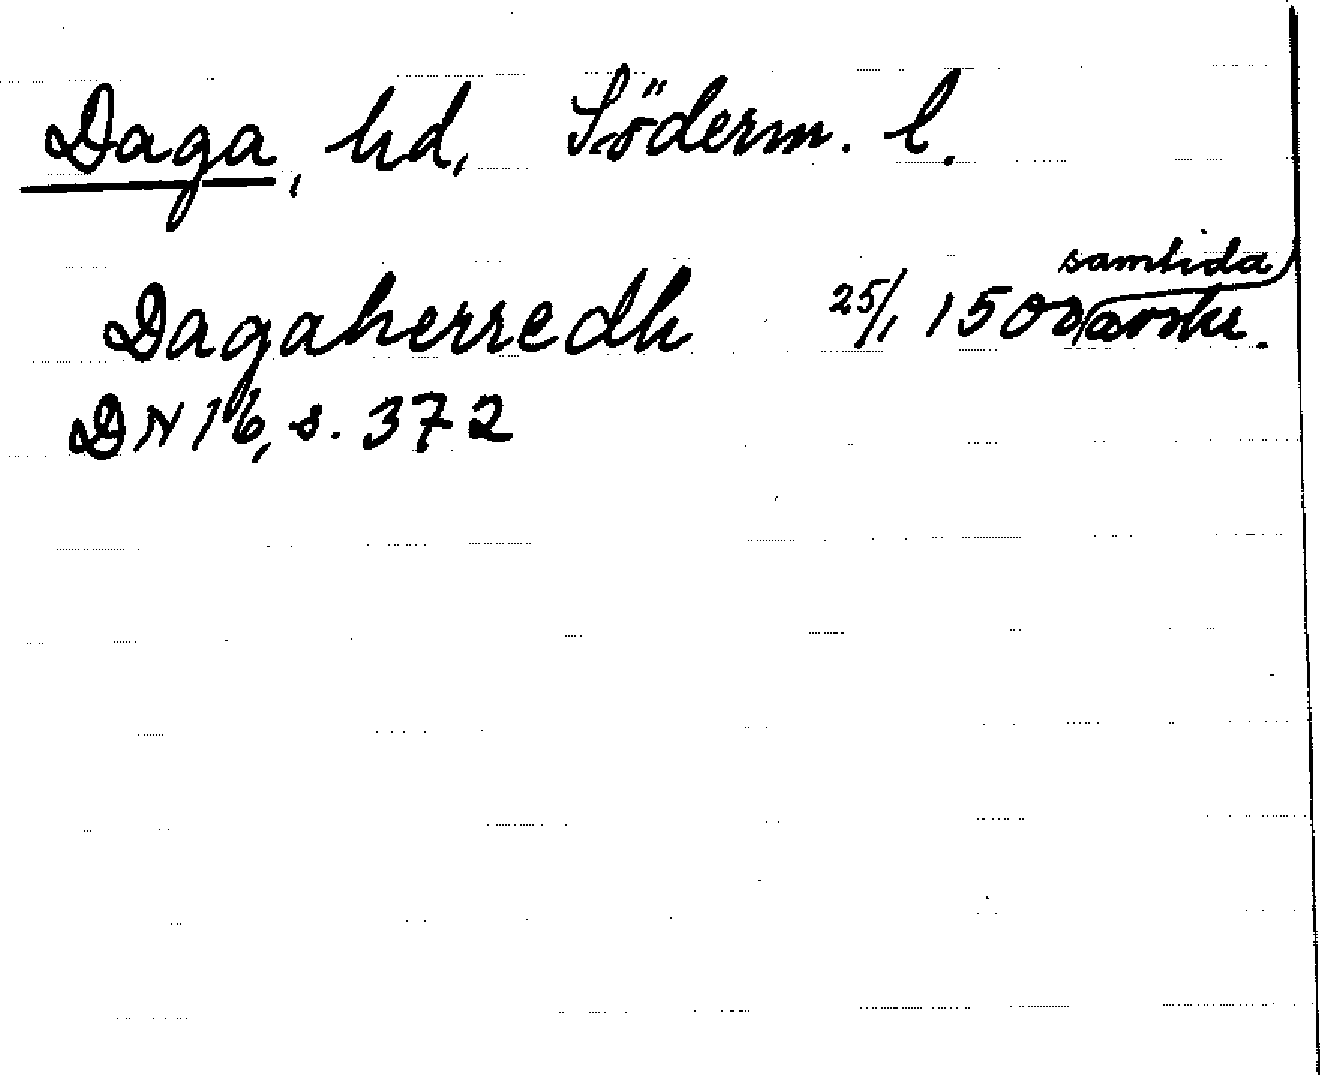 Daga, hd, Söderm. l.
Dagaherredh 25/1 1500 samtida avskr.
DN 16, s. 372